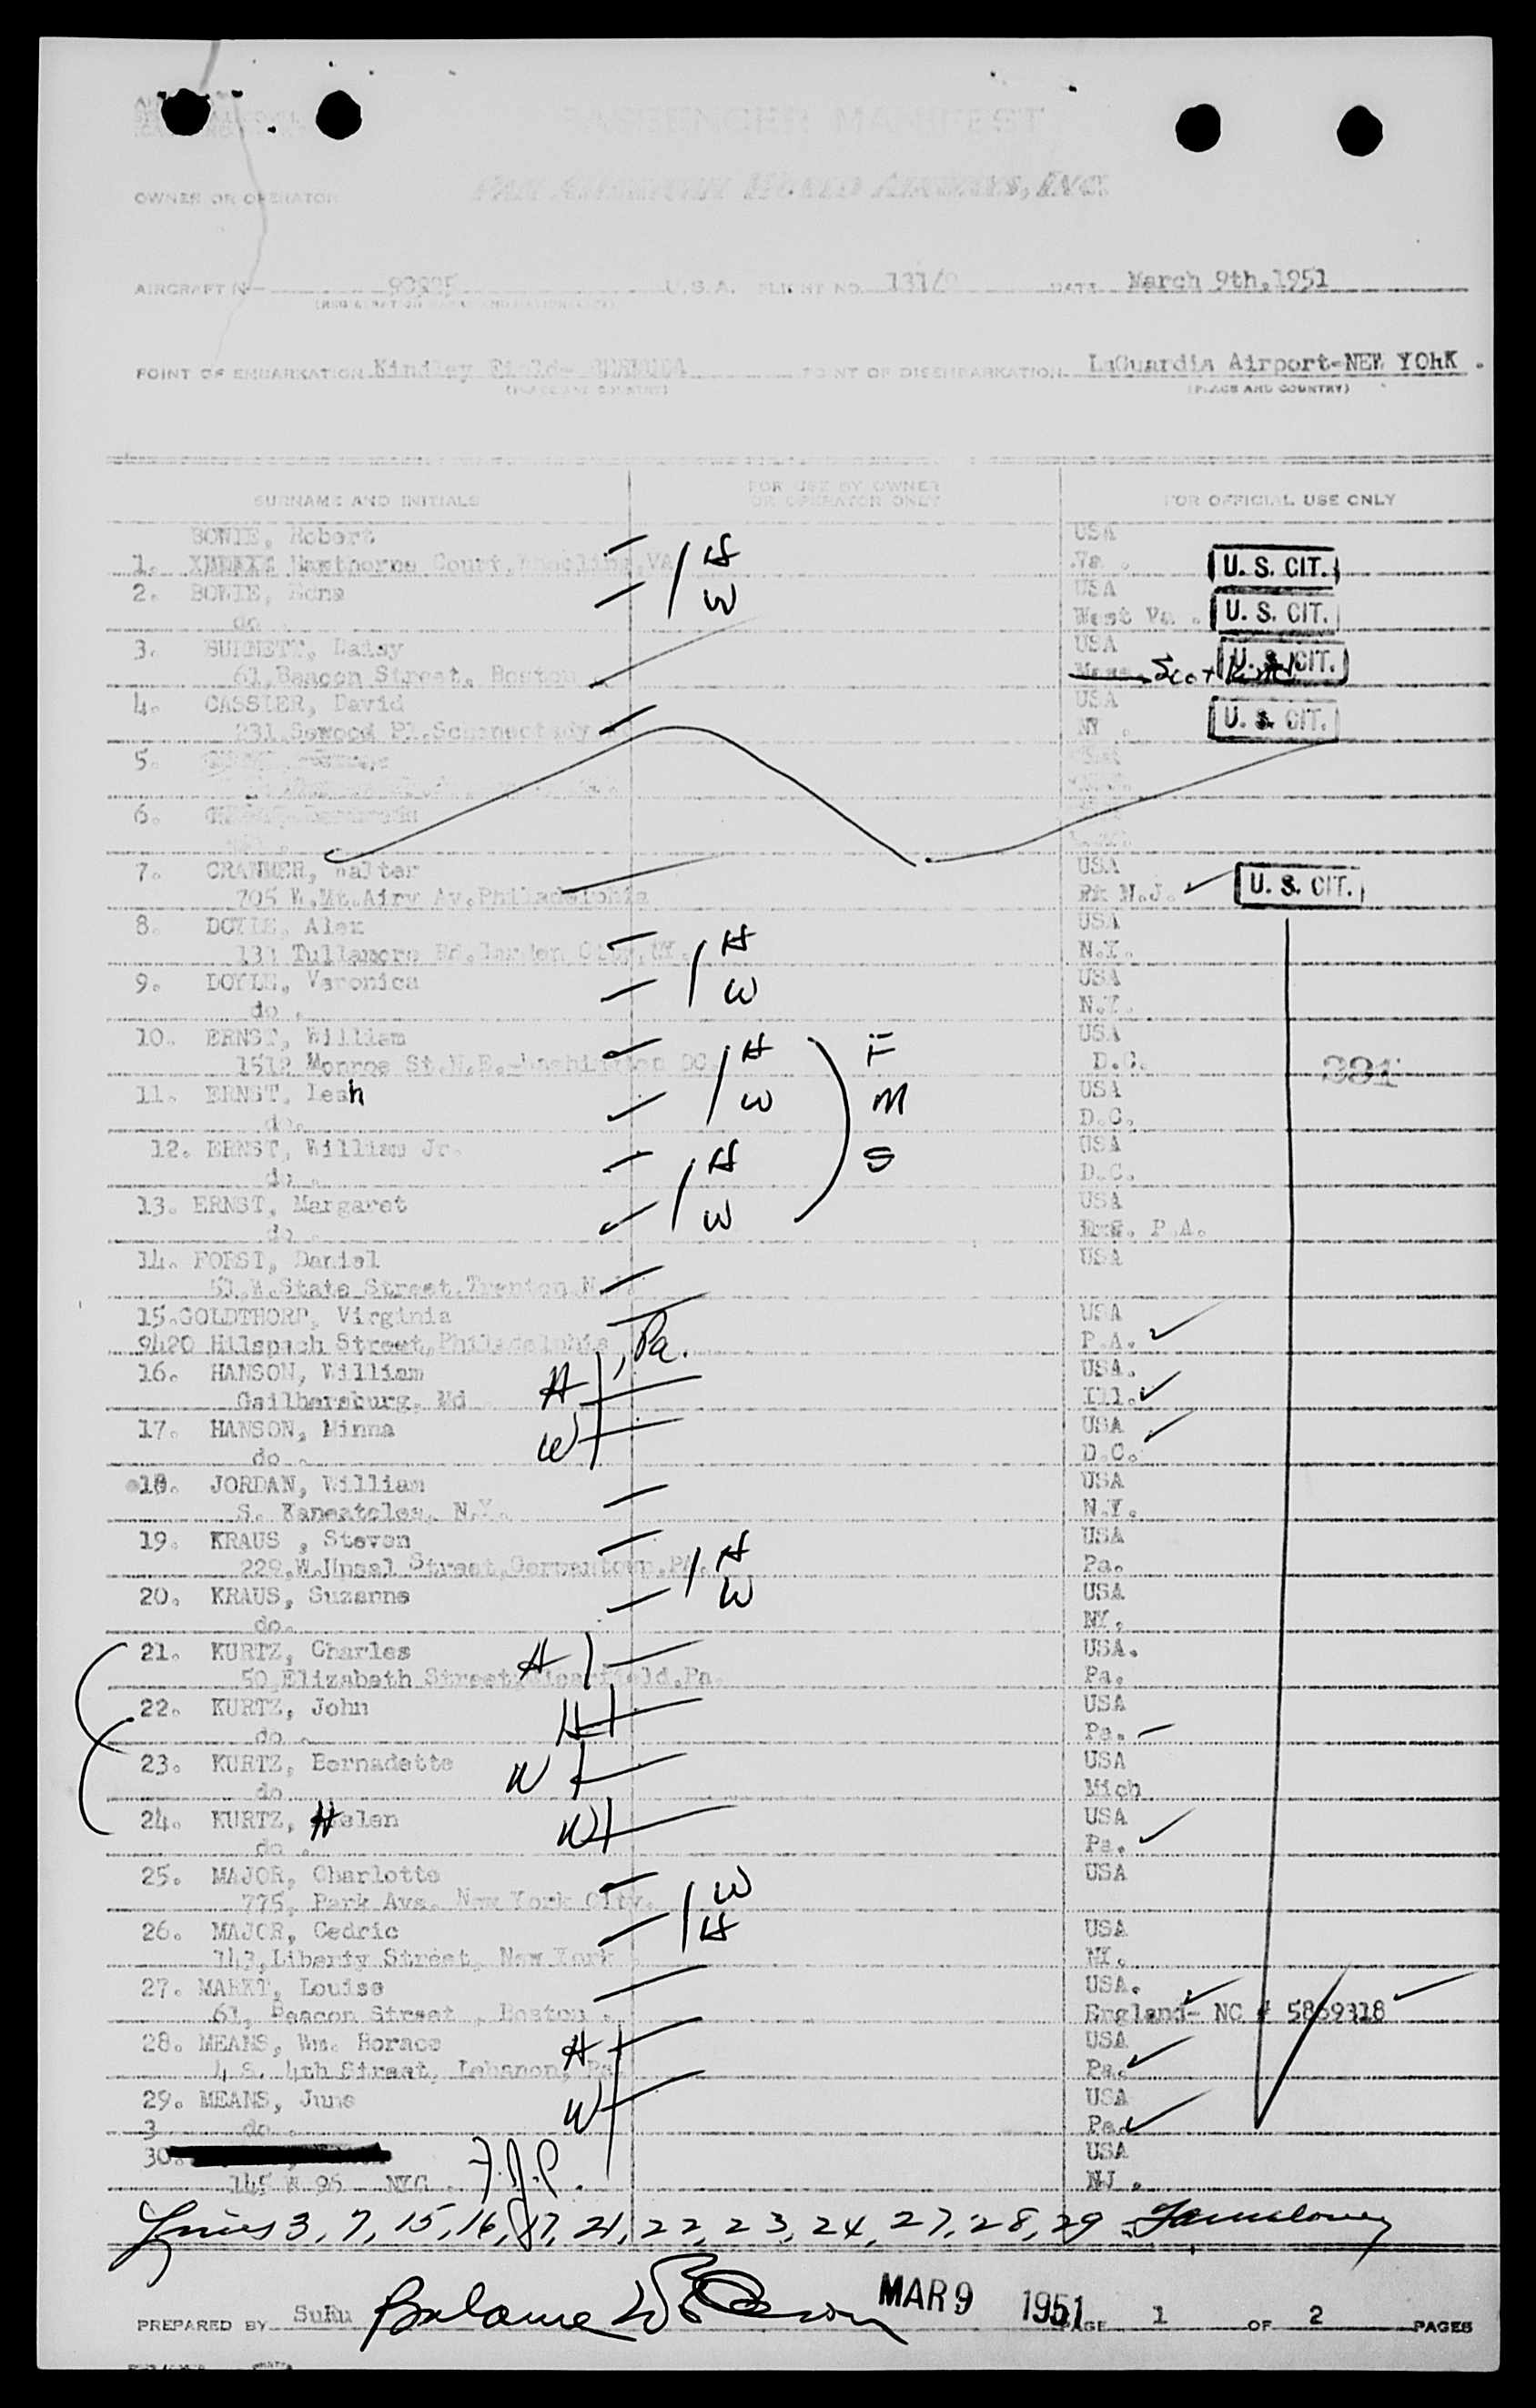 PASSENGER MANIFEST
OWNER OR OPERATOR PAN AMERICAN WORLD AIRWAYS, INC.
AIRCRAFT N U.S.A. FLIGHT NO. 131/9 DATE March 9th, 1951
POINT OF EMBARKATION Kindley Field- BERMUDA POINT OF DISEMBARKATION LaGuardia Airport-NEW YORK .
(PLACE AND COUNTRY) (PLACE AND COUNTRY)
SURNAME AND INITIALS FOR USE BY OWNER OR OPERATOR ONLY FOR OFFICIAL USE ONLY
BOWIE, Robert USA
1. Hawthorne Court, VA H Va . U. S. CIT.
2. BOWIE, W USA
do West Va . U. S. CIT.
3. Daisy USA U. S. CIT.
61, Beacon Street, Boston Mass Scotland
4. CASSIER, David USA
231, Pl. Schenectady NY . U. S. CIT.
5.
6.
7. CRANMER, Walter USA
705 W. Mt. Airy Av, Philadelphia N.J. U. S. CIT.
8. DOYLE, Alex USA
Tullamore Rd. Garden City, NY. H N.Y.
9. DOYLE, Veronica W USA
do . N.Y.
10. ERNST, William H F USA
1512 Monroe St. N.E.-Washington DC D.C. 331
11. ERNST, Leah W M USA
do. D.C.
12. ERNST, William Jr. H S USA
do . D.C.
13. ERNST, Margaret W USA
do . P.A.
14. FORST, Daniel USA
51, W. State Street, Trenton, N.J.
15. GOLDTHORP, Virginia USA
9420 Hilspach Street, Philadelphia , Pa. P.A.
16. HANSON, William H USA.
Gaithersburg, Md Ill.
17. HANSON, Minna W USA
do . D.C.
18. JORDAN, William USA
S. Kaneatoles, N.Y. N.Y.
19. KRAUS , Steven H USA
229, W. Upsal Street, Germantown, PA. Pa.
20. KRAUS, Suzanne W USA
do. NY.
21. KURTZ, Charles H USA.
50, Elizabeth Street, Clearfield, Pa. Pa.
22. KURTZ, John H USA
do . Pa.
23. KURTZ, Bernadette W USA
do Mich
24. KURTZ, Helen W USA
do . Pa.
25. MAJOR, Charlotte W USA
775, Park Ave. New York City.
26. MAJOR, Cedric H USA
143, Liberty Street, New York NY.
27. MARKT, Louise USA.
61, Beacon Street , Boston . England- NC # 5869318
28. MEANS, Wm. Horace H USA
4 S. 4th Street, Lebanon, Pa. Pa.
29. MEANS, June W USA
3 do . Pa.
30. USA
145 W 96 NYC . F.J.P. NJ .
Lines 3, 7, 15, 16, 17, 21, 22, 23, 24, 27, 28, 29
PREPARED BY SuRu MAR 9 1951 PAGE 1 OF 2 PAGES